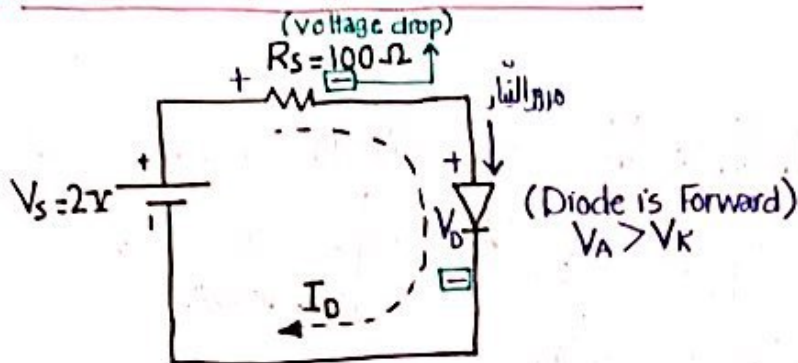 (voltage drop)
Rs = 100 Ω
+ −
مرور التيار
+
Vs = 2v
−
+
VD
−
(Diode is Forward)
VA > VK
ID